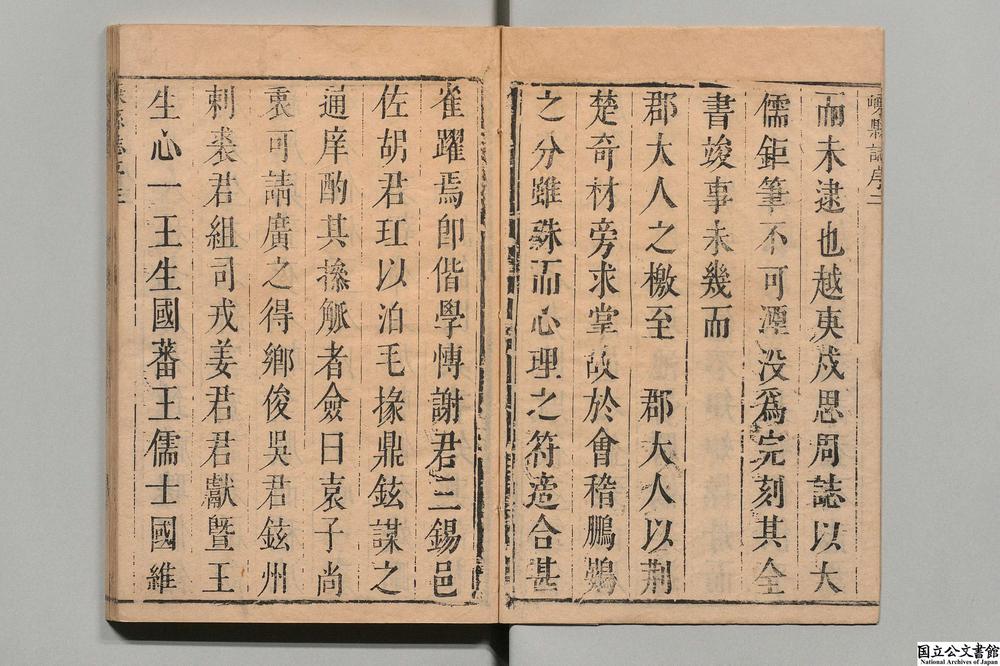 嵊縣誌序二
而未逮也越庚戌思周誌以大
儒鉅筆不可湮没爲完刻其全
書竣事未幾而
郡大人之檄至 郡大人以荆
楚奇材旁求掌故於會稽鵬鷃
之分雖殊而心理之符適合甚
雀躍焉即偕學愽謝君三錫邑
佐胡君玒以泊毛掾鼎鉉謀之
通庠酌其搽觚者僉曰袁子尚
衷可請廣之得鄉俊吳君鉉州
刺裘君組司戎姜君君獻暨王
生心一王生國蕃王儒士國維
国立公文書館
National Archives of Japan